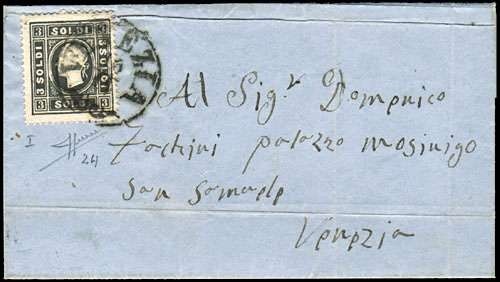 SOLDI
3 SOLDI
3 SOLDI
SOLDI
VENEZIA
Al Sig.r Domenico
Zachini palazzo mosinigo
san Samuele
Venezia
I
24